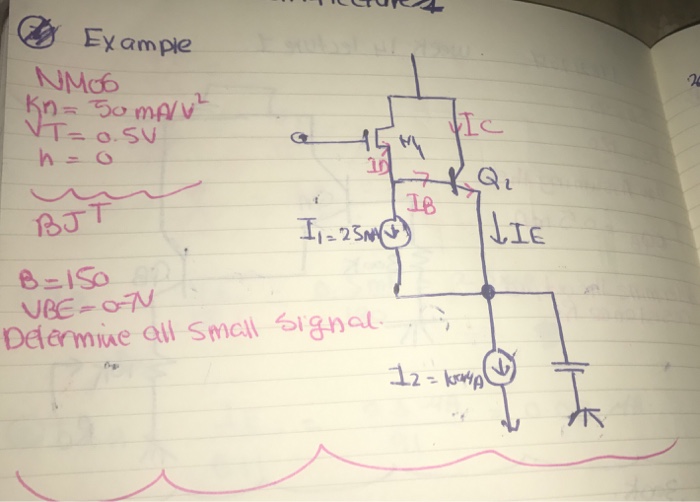 Example
NMOS
Kn = 50 mA/V²
VT = 0.5V
n = 0
BJT
B = 150
VBE = 0.7V
Determine all small signal.
IC
M1
ID
Q2
IB
I1 = 25
IE
I2 =